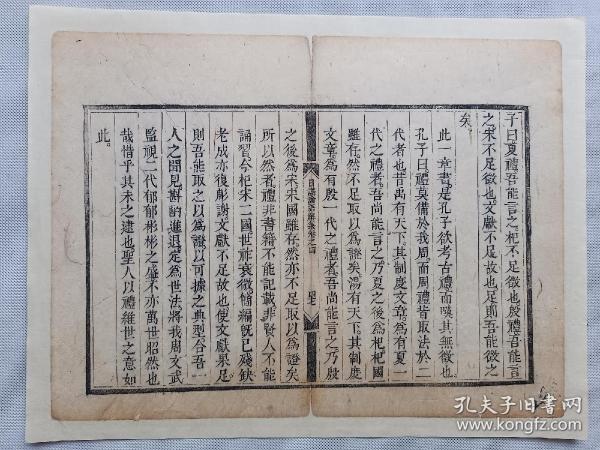 子曰夏禮吾能言之杞不足徵也殷禮吾能言
之宋不足徵也文獻不足故也足則吾能徵之
矣
此一章書是孔子欲考古禮而嘆其無徵也
孔子曰禮莫備於我周而周禮皆取法於二
代者也昔禹有天下其制度文章為有夏一
代之禮者吾尚能言之乃夏之後為杞杞國
雖存然不足取以為證矣湯有天下其制度
文章為有殷一代之禮者吾尚能言之乃殷
日講論語解義卷之四
之後為宋宋國雖存然亦不足取以為證矣
所以然者禮非書籍不能記載非賢人不能
誦習今杞宋二國世祚衰微簡編既已殘缺
老成亦復彫謝文獻不足故也使文獻果足
則吾能取之以為證以可據之典型合吾一
人之聞見斟酌進退定為世法將我周文武
監視二代郁郁彬彬之盛不亦萬世昭然也
哉惜乎其未之逮也聖人以禮維世之意如
此
孔夫子旧书网
www.kongfz.com